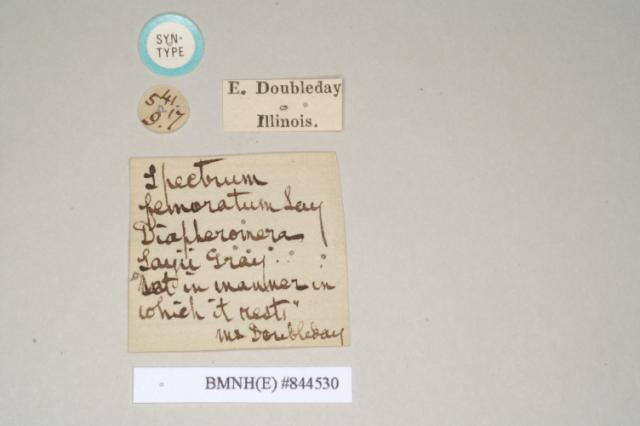 SYN-
TYPE
541.
9.17
E. Doubleday
Illinois.
Spectrum
femoratum Say
Diapheromera
Sayii Gray
"Set in manner in
which it rests"
Ms Doubleday
BMNH(E) #844530